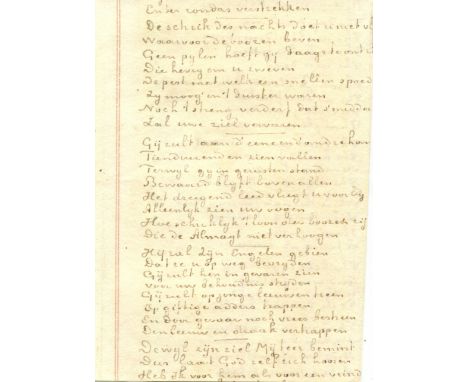 En ter rondas verstrekken
De schrik des nachts doet u niet vl
Waarvoor de boozen beven
Geen pylen hoeft gy daags te ont
Die hevig om u zweven
De pest met welk een snellen spoed
Zy moog in 't duister waren
Noch 't streng verderf dat 's midda
Zal uwe ziel vervaren
Gij zult aan d' eene en d' andre han
Tienduizenden zien vallen
Terwyl gy in gerusten stand
Bewaard blyft boven allen
Het dreigend leed vliegt u voorby
Alleenlyk zien uw oogen
Hoe schriklyk 't loon der boozen zij
Die de Almagt niet verhoogen
Hij zal zijn Engelen gebien
Dat ze u op weg bevryden
Gij zult hen in gevaren zien
voor uw behoudnis stryden
Gij zult op jonge leeuwen treen
Op giftige adders trappen
En door gevaar noch vrees bestreen
Den leeuw en draak vertrappen
Dewyl zyn ziel Mij teer bemint
Dus laat God zelf zich hooren
Heb Ik voor hem als voor een vrind